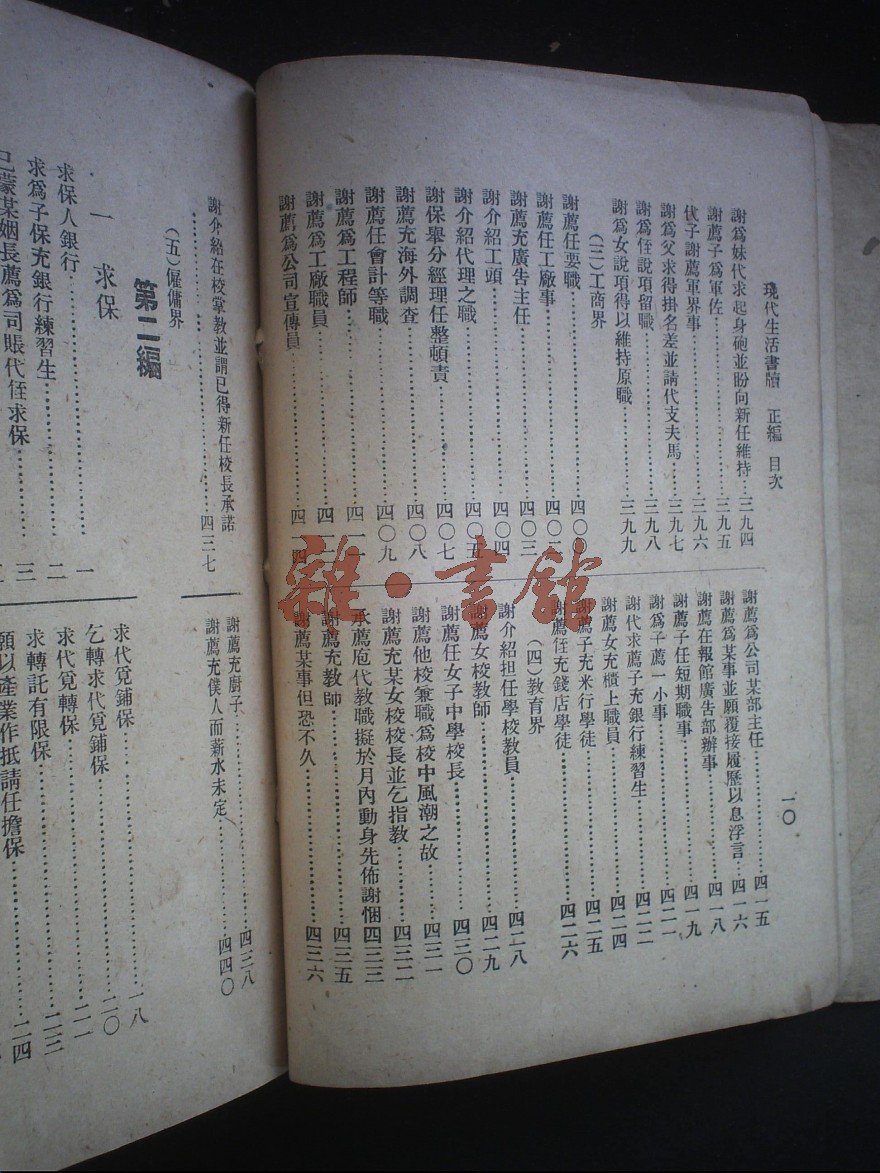 現代生活書牘 正編 目次
一〇
謝爲妹代求起身砲並盼向新任維持…………三九四
謝薦子爲軍佐…………三九五
代子謝薦軍界事…………三九六
謝爲父求得掛名差並請代支夫馬…………三九七
謝爲侄說項留職…………三九八
謝爲女說項得以維持原職…………三九九
(三)工商界
謝薦任要職…………四〇〇
謝薦任工廠事…………四〇二
謝薦充廣告主任…………四〇三
謝介紹工頭…………四〇四
謝介紹代理之職…………四〇五
謝保舉分經理任整頓責…………四〇七
謝薦充海外調查…………四〇八
謝薦任會計等職…………四〇九
謝薦爲工程師…………四一一
謝薦爲工廠職員…………四一二
謝薦爲公司宣傳員…………四一四
謝薦爲公司某部主任…………四一五
謝薦爲某事並願覆接履歷以息浮言…………四一六
謝薦在報館廣告部辦事…………四一八
謝薦子任短期職事…………四一九
謝爲子薦一小事…………四二一
謝代求薦子充銀行練習生…………四二二
謝薦女充櫃上職員…………四二四
謝薦子充米行學徒…………四二五
謝薦侄充錢店學徒…………四二六
(四)教育界
謝介紹担任學校教員…………四二八
謝薦女校教師…………四二九
謝薦任女子中學校長…………四三〇
謝薦他校兼職爲校中風潮之故…………四三一
謝薦充某女校校長並乞指教…………四三二
承薦庖代教職擬於月內動身先佈謝悃…………四三三
謝薦充教師…………四三五
謝薦某事但恐不久…………四三六
謝介紹在校掌教並謂已得新任校長承諾…………四三七
(五)傭僱界
謝薦充廚子…………四三八
謝薦充僕人而薪水未定…………四四〇
第二編
一 求保
求保人銀行…………一
求爲子保充銀行練習生…………二
已蒙某姻長薦爲司賬代侄求保…………三
求代覓鋪保…………一八
乞轉求代覓鋪保…………二〇
求代覓轉保…………二一
求轉託有限保…………二三
願以產業作抵請任擔保…………二四
雜·書館